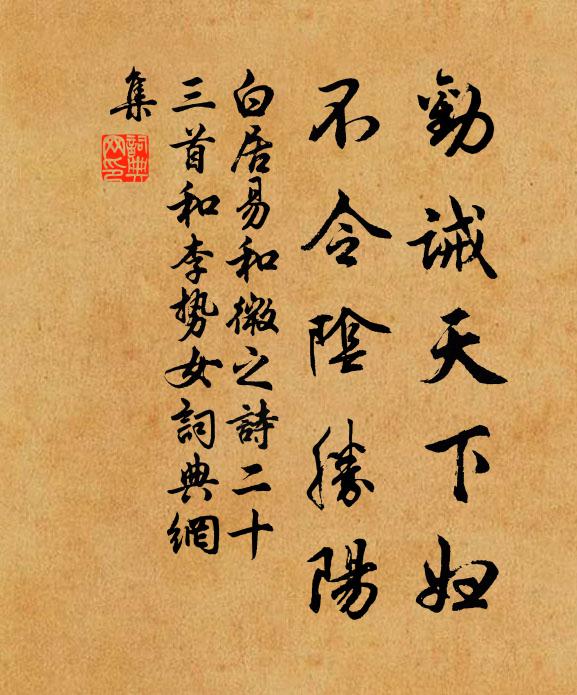 勸誡天下婦
不令陰勝陽
白居易和微之詩二十
三首和李势女詞典網
集
詞典
网印